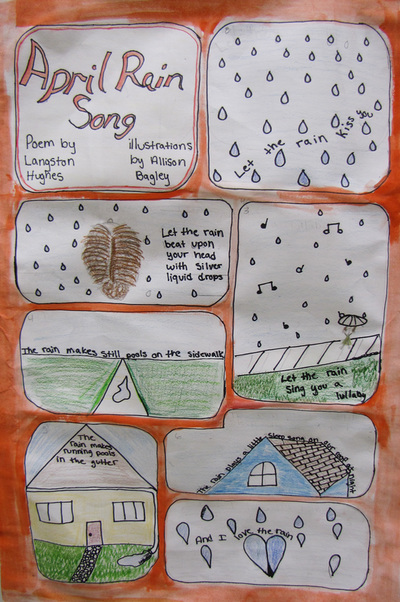 April Rain
Song
Poem by
Langston
Hughes
illustrations
by Allison
Bagley
Let the rain kiss you
Let the rain
beat upon
your head
with silver
liquid drops
Let the rain
sing you a
lullaby
The rain makes still pools on the sidewalk
The
rain makes
running pools
in the gutter
The rain plays a little sleep song on our roof at night
And I love the rain